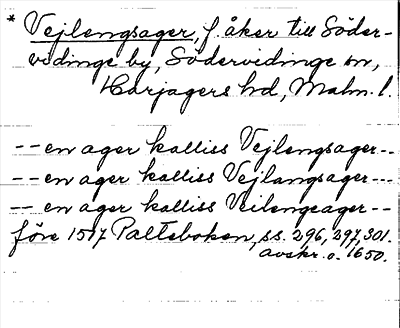 * Vejlengsager, f. åker till Söder-
vidinge by, Södervidinge sn,
Harjagers hd, Malm. l.
-- en ager kalliss Vejlengsager --
-- en ager kalliss Vejlangsager ---
-- en ager kalliss Veilengeager --
före 1517 Palteboken, ss. 296, 297, 301.
avskr. o. 1650.